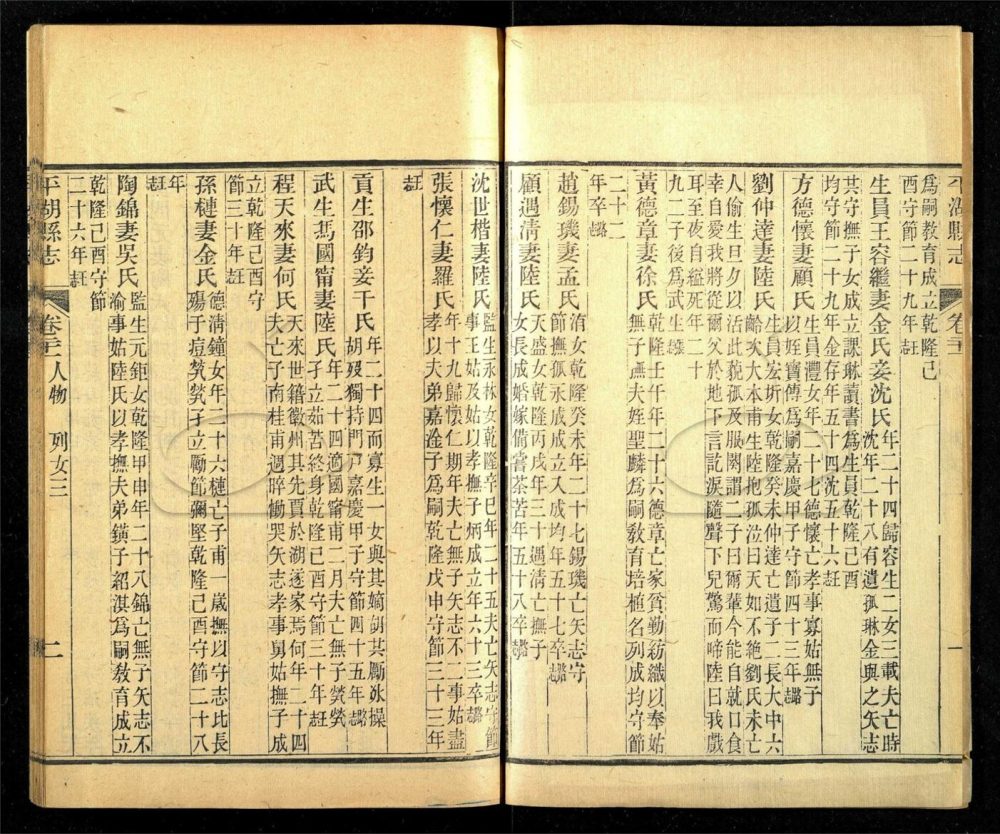 平湖縣志 卷二十二 一
爲嗣教育成立乾隆己
酉守節二十九年 㠪
生員王容繼妻金氏妾沈氏
年二十四歸容生二女三載夫亡時
沈年二十八有遺孤琳金與之矢志
其守撫子女成立課琳讀書爲生員乾隆己酉
均守節二十九年金存年五十四沈五十六
方德懷妻顧氏
生員灃女年二十七德懷亡孝事寡姑無子
以姪寶傳爲嗣嘉慶甲子守節四十三年
劉仲達妻陸氏
生員宏圻女乾隆癸未仲達亡遺子二長大中六
齡次大本甫生陸抱孤泣曰天如不絶劉氏未亡
人偷生旦夕以活此藐孤及服闋謂二子曰爾輩今能自就口食
幸自愛我將從爾父於地下言訖淚隨聲下兒驚而啼陸曰我戲
耳至夜自縊死年二十
九二子後爲武生
黃德章妻徐氏
乾隆壬午年二十六德章亡家貧勤紡織以奉姑
無子撫夫姪聖麟爲嗣教育培植名列成均守節
二十二
年卒
趙錫璣妻孟氏
淯女乾隆癸未年二十七錫璣亡矢志守
節撫孤永成成立入成均年五十七卒
顧遇清妻陸氏
天盛女乾隆丙戌年三十遇清亡撫子
女長成婚嫁備嘗荼苦年五十八卒
沈世楷妻陸氏
監生永林女乾隆辛巳年二十五夫亡矢志守節
事王姑及姑以孝撫子炳成立年六十三卒
張懷仁妻羅氏
年十九歸懷仁期年夫亡無子矢志不二事姑盡
孝以夫弟嘉淦子爲嗣乾隆戊申守節三十三年
貢生邵鈞妾干氏
年二十四而寡生一女與其嫡胡其勵冰操
胡歿獨持門戸嘉慶甲子守節四十五年
武生馬國甯妻陸氏
年二十四適國甯甫二月夫亡無子煢煢
孑立茹苦終身乾隆己酉守節三十年
程天來妻何氏
天來世籍徽州其先賈於湖遂家焉何年二十四
夫亡子南桂甫週晬慟哭矢志孝事舅姑撫子成
立乾隆己酉守
節三十年
孫槤妻金氏
德清鐘女年二十六槤亡子甫一歲撫以守志比長
殤子痘煢煢孑立勵節彌堅乾隆己酉守節二十八
年
陶錦妻吳氏
監生元鉅女乾隆甲申年二十八錦亡無子矢志不
渝事姑陸氏以孝撫夫弟鐄子紹淇爲嗣教育成立
乾隆己酉守節
二十六年
平湖縣志 卷二十二 人物 列女三 二